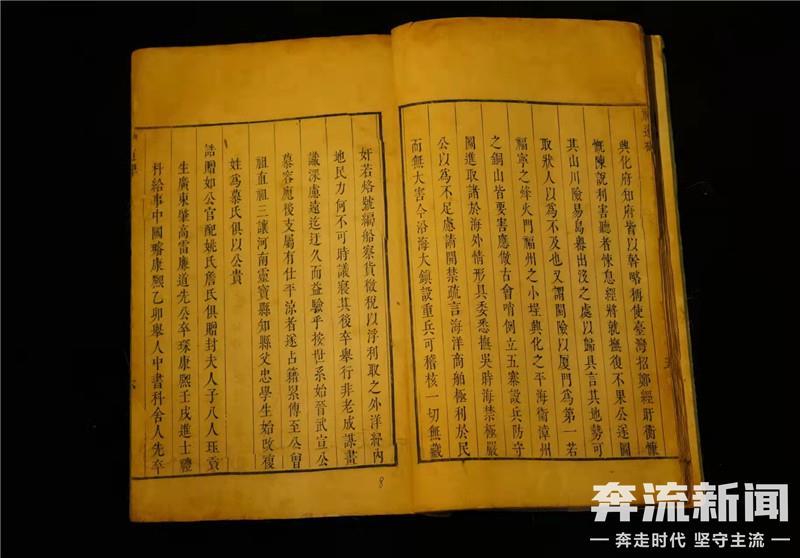 興化府知府皆以幹略稱使臺灣招鄭經盱衡慷
慨陳說利害聽者悚息經將就撫復不果公遂圖
其山川險易島嶴出沒之處以歸具言其地勢可
取狀人以為不及也又謂閩險以厦門為第一若
福寧之烽火門福州之小埕興化之平海衛漳州
之銅山皆要害應倣古會哨倒立五寨設兵防守
圖進取諸於海外情形具委悉撫吳時海禁極嚴
公以為不足處請開禁疏言海洋商舶極利於民
而無大害今沿海大鎮設重兵可稽核一切無藏
奸若烙號編船察貨徵稅以浮利取之外洋紓內
地民力何不可時議寢其後卒舉行非老成謀畫
識深慮遠迄迂久而益驗乎按世系始晉武宣公
慕容應後支屬有仕平涼者遂占籍累傳至公曾
祖直祖三讓河南靈寶縣知縣父忠學生始改複
姓為慕氏俱以公貴
誥贈如公官配姚氏詹氏俱贈封夫人子八人珏貢
生廣東肇高雷廉道先公卒琛康熙壬戌進士禮
科給事中國康熙乙卯舉人中書科舍人先卒
8
奔流新闻
奔走时代 坚守主流